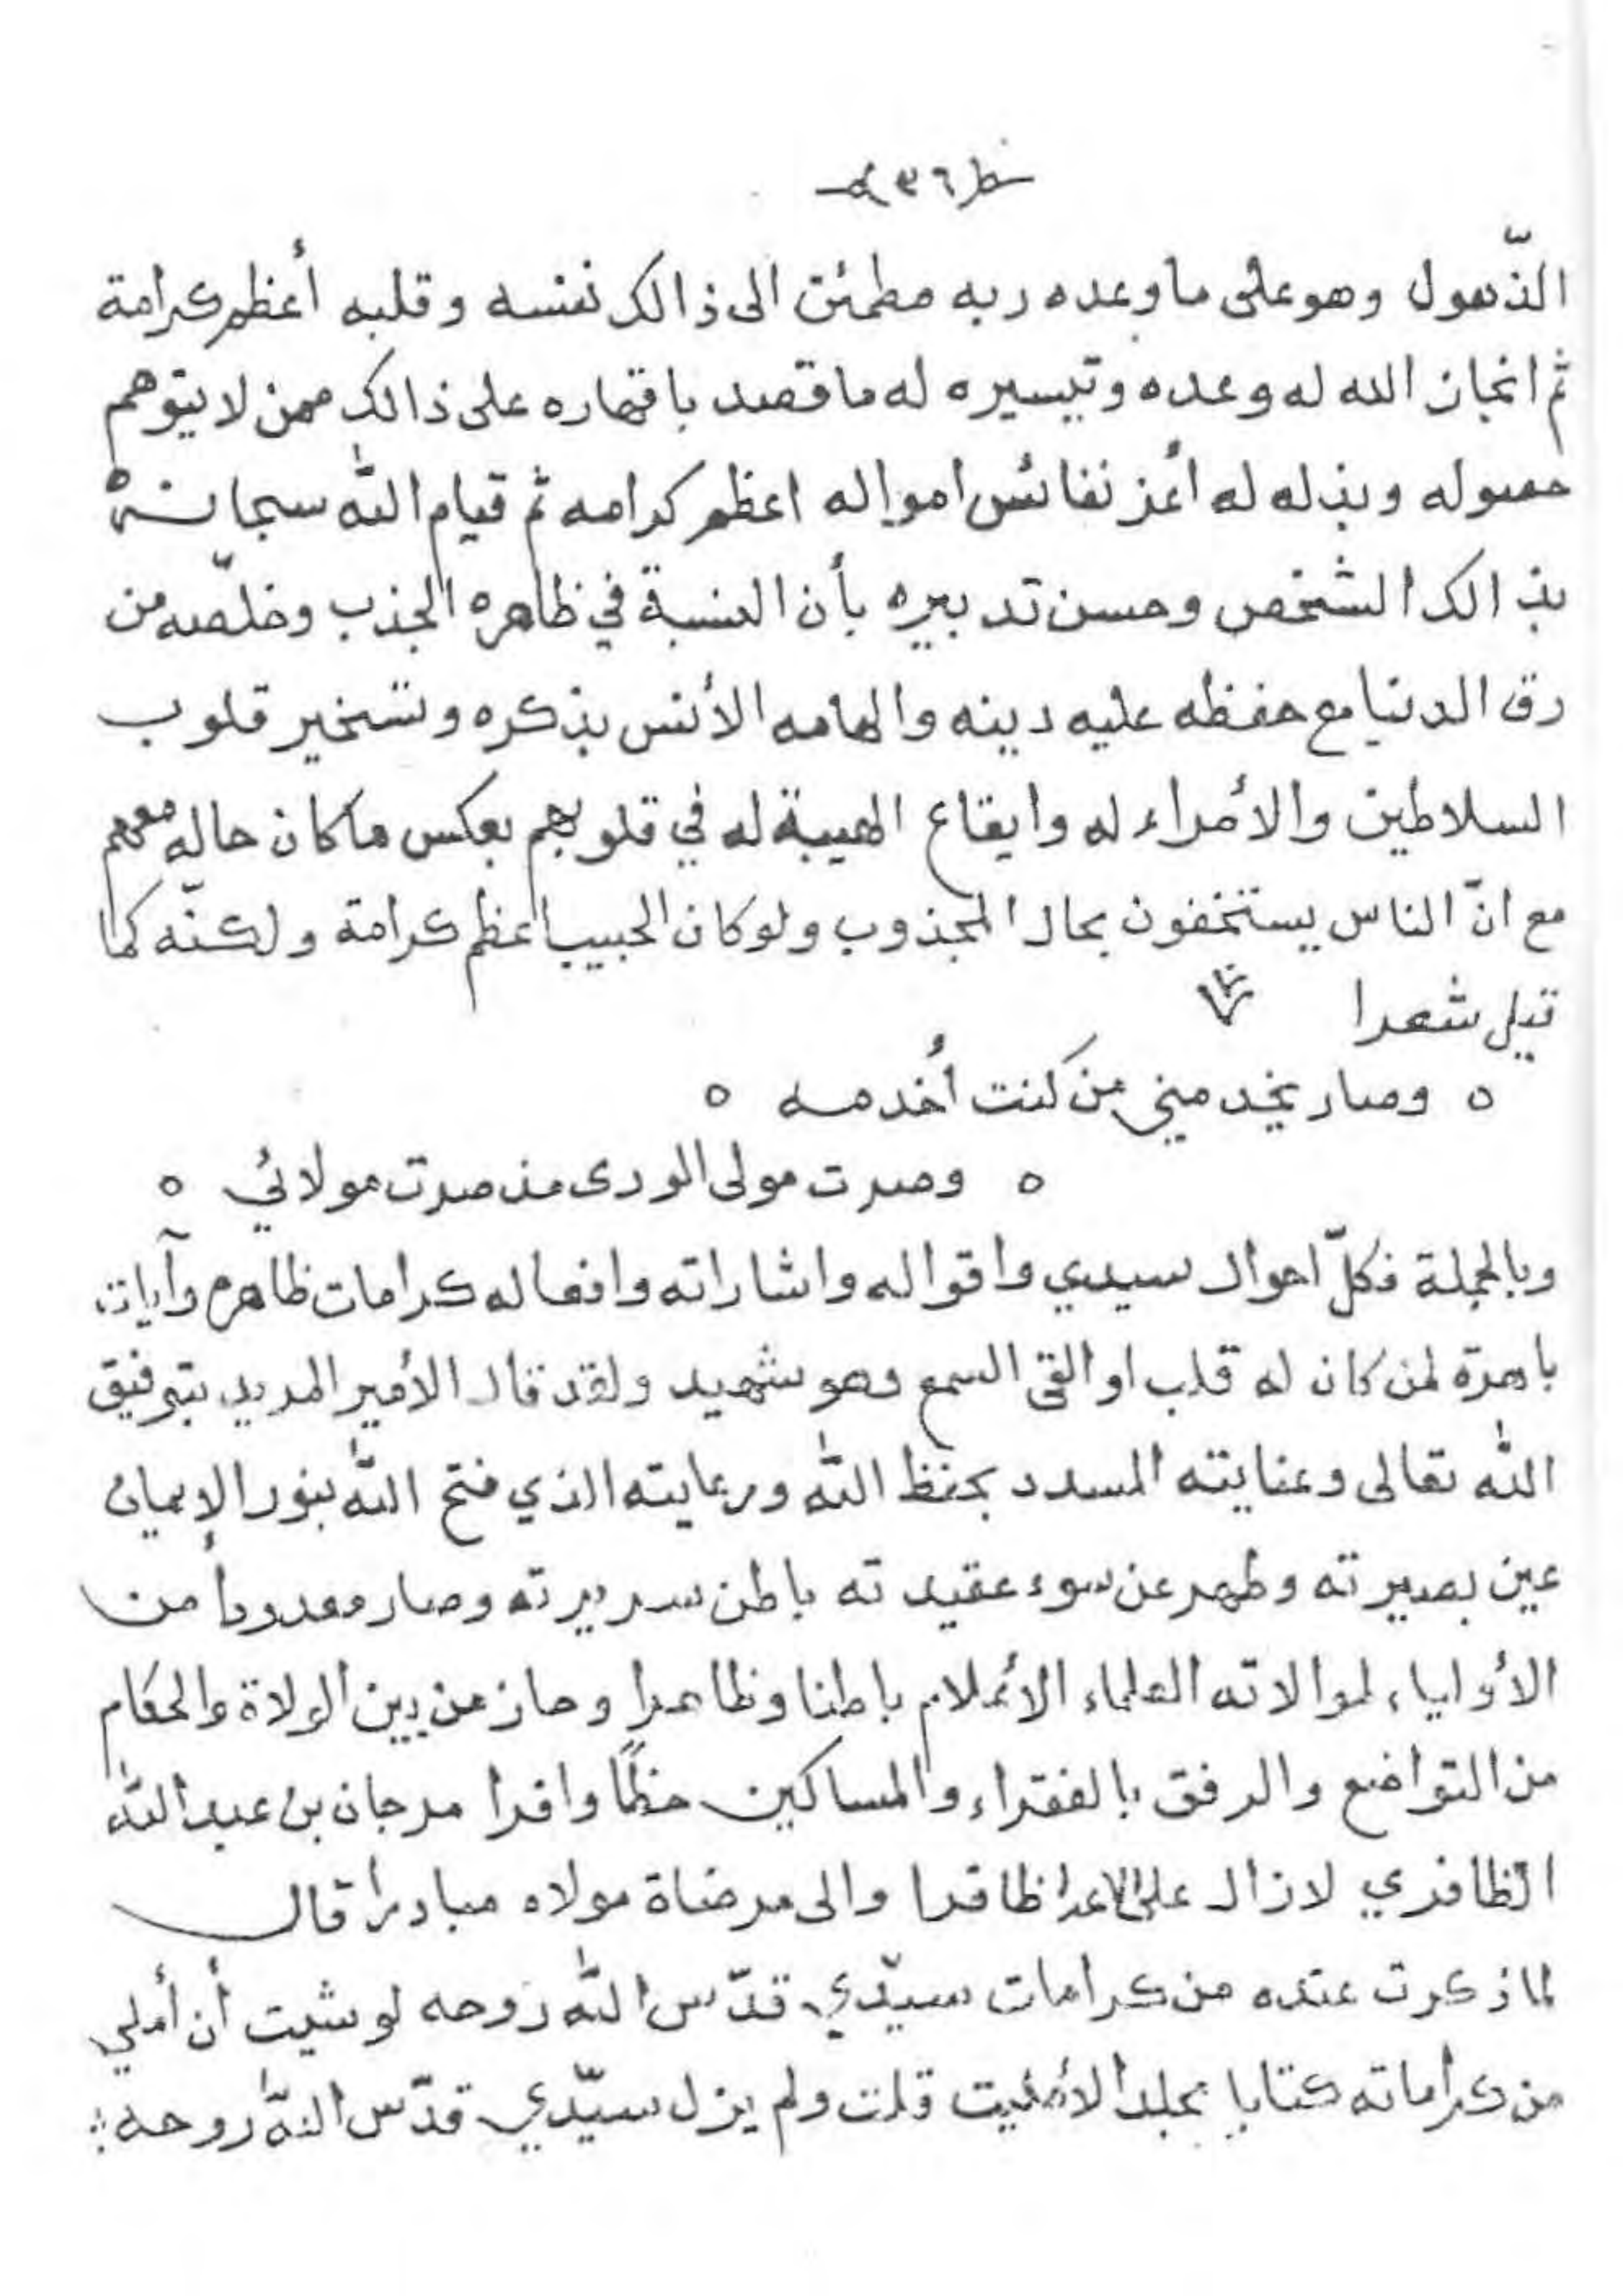 ٣٦
الذّهول وهو على ما وعده ربه مطمئن الى ذالك نفسه وقلبه أعظم كرامة
ثم انجاز الله له وعده وتيسيره له ما قصد باقهاره على ذالك ممن لا يتوهم
حصوله وبذله له أعز نفائس امواله اعظم كرامه ثم قيام الله سبحانه
بذالك الشخص وحسن تدبيره بأن النسبة في ظاهره الجذب وخلّصه من
رق الدنيا مع حفظه عليه دينه والهامه الأنس بذكره وتسخير قلوب
السلاطين والأمراء له وايقاع الهيبة له في قلوبهم بعكس ما كان حاله معهم
مع انّ الناس يستخفون بحال المجذوب ولو كان الحبيب اعظم كرامة ولكنّه كما
قيل شعرا
٥ وصار يخدمني من كنت أخدمه ٥
٥ وصرت مولى الورى مذ صرت مولائي ٥
وبالجملة فكلّ احوال سيدي واقواله واشاراته وافعاله كرامات ظاهره وآيات
باهرة لمن كان له قلب او القى السمع وهو شهيد ولقد قال الأمير المريد بتوفيق
الله تعالى وعنايته المسدد بحفظ الله ورعايته الذي فتح الله بنور الإيمان
عين بصيرته وطهر عن سوء عقيدته باطن سريرته وصار معدودا من
الأولياء لموالاته العلماء الأعلام باطنا وظاهرا وحاز من بين الولاة والحكام
من التواضع والرفق بالفقراء والمساكين حظًا وافرا مرجان بن عبد الله
الظافري لازال على الاعدا ظافرا والى مرضاة مولاه مبادرا قال
لما ذكرت عنده من كرامات سيّدي قدّس الله روحه لو شيت أن أملي
من كراماته كتابا مجلدا لأمليت قلت ولم يزل سيّدي قدّس الله روحه